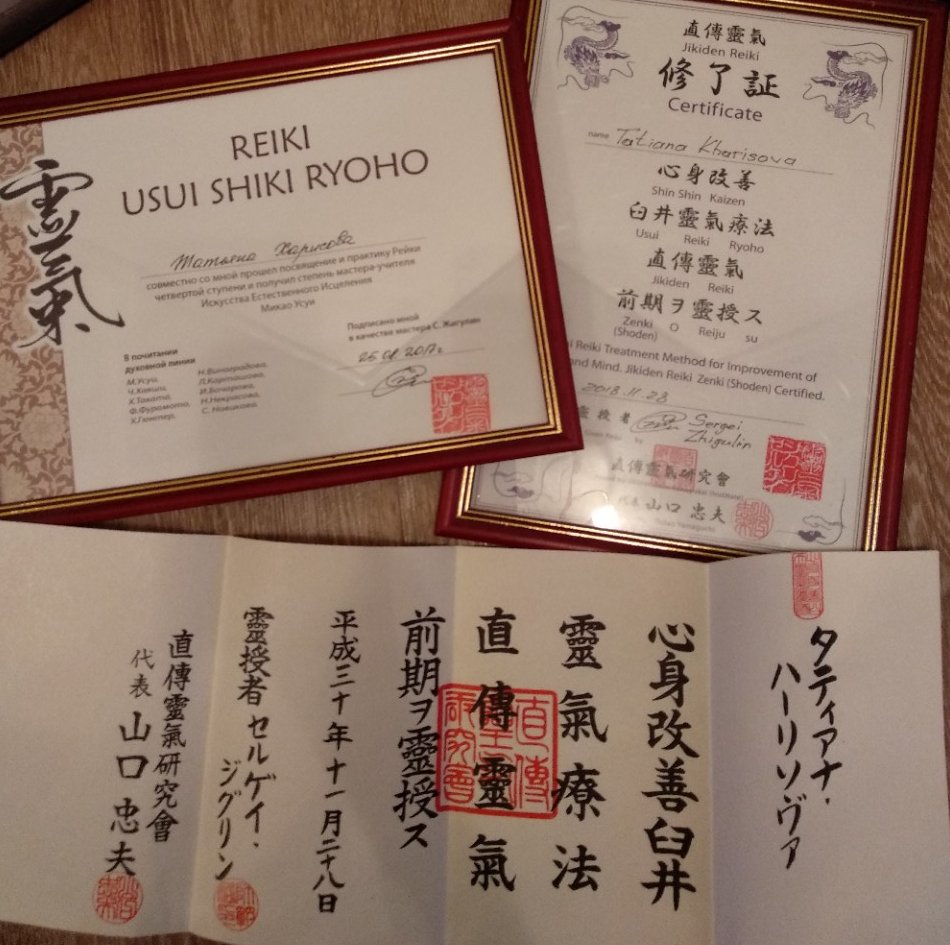 靈氣
REIKI
USUI SHIKI RYOHO
Татьяна Харисова
совместно со мной прошел посвящение и практику Рейки
четвертой ступени и получил степень мастера-учителя
Искусства Естественного Исцеления
Микао Усуи
В почитании
духовной линии
М.Усуи,
Ч.Хаяши,
Х.Таката,
Ф.Фурумото,
Х.Гюнтер,
Н.Виноградова,
Л.Карташова,
И.Бочарова,
Н.Некрасова,
С.Новикова.
Подписано мной
в качестве мастера С. Жигулин
直傳靈氣
Jikiden Reiki
修了証
Certificate
name Tatiana Kharisova
心身改善
Shin Shin Kaizen
臼井靈氣療法
Usui Reiki Ryoho
直傳靈氣
Jikiden Reiki
前期ヲ靈授ス
Zenki O Reiju su
(Shoden)
Reiki Treatment Method for Improvement of
and Mind. Jikiden Reiki Zenki (Shoden) Certified.
2018.11.28
靈授者 Sergei
Zhigulin
直傳靈氣研究會
代表 山口 忠夫
Tadao Yamaguchi
タティアナ・
ハーリソヴァ
心身改善臼井
靈氣療法
直傳靈氣
前期ヲ靈授ス
平成三十年十一月二十八日
靈授者 セルゲイ・
ジグリン
直傳靈氣研究會
代表 山口 忠夫